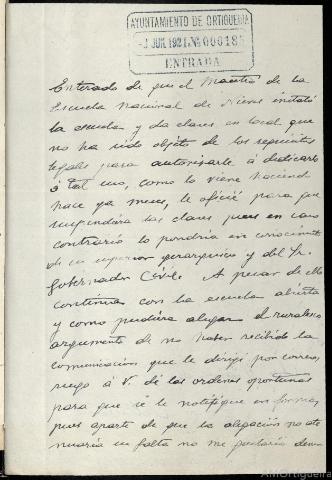 AYUNTAMIENTO DE ORTIGUEIRA
-1 JUN. 1921 Nº 000185
ENTRADA
Enterado de que el Maestro de la
Escuela Nacional de Nieves instaló
la escuela y da clases en local que
no ha sido objeto de los requisitos
legales para autorizarle á dedicarlo
á tal uso, como lo viene haciendo
hace ya meses, le oficié para que
suspendiera las clases pues en caso
contrario lo pondría en conocimiento
de su superior gerarquico y del Sr.
Gobernador Civil. A pesar de ello
continua con la escuela abierta
y como pudiera alegar el
argumento de no haber recibido la
comunicación que le dirigí por correo,
ruego á V. dé las ordenes oportunas
para que se le notifique en forma,
pues aparte de que la alegación no ate
nuaría su falta no me gustaría
AMOrtigueira